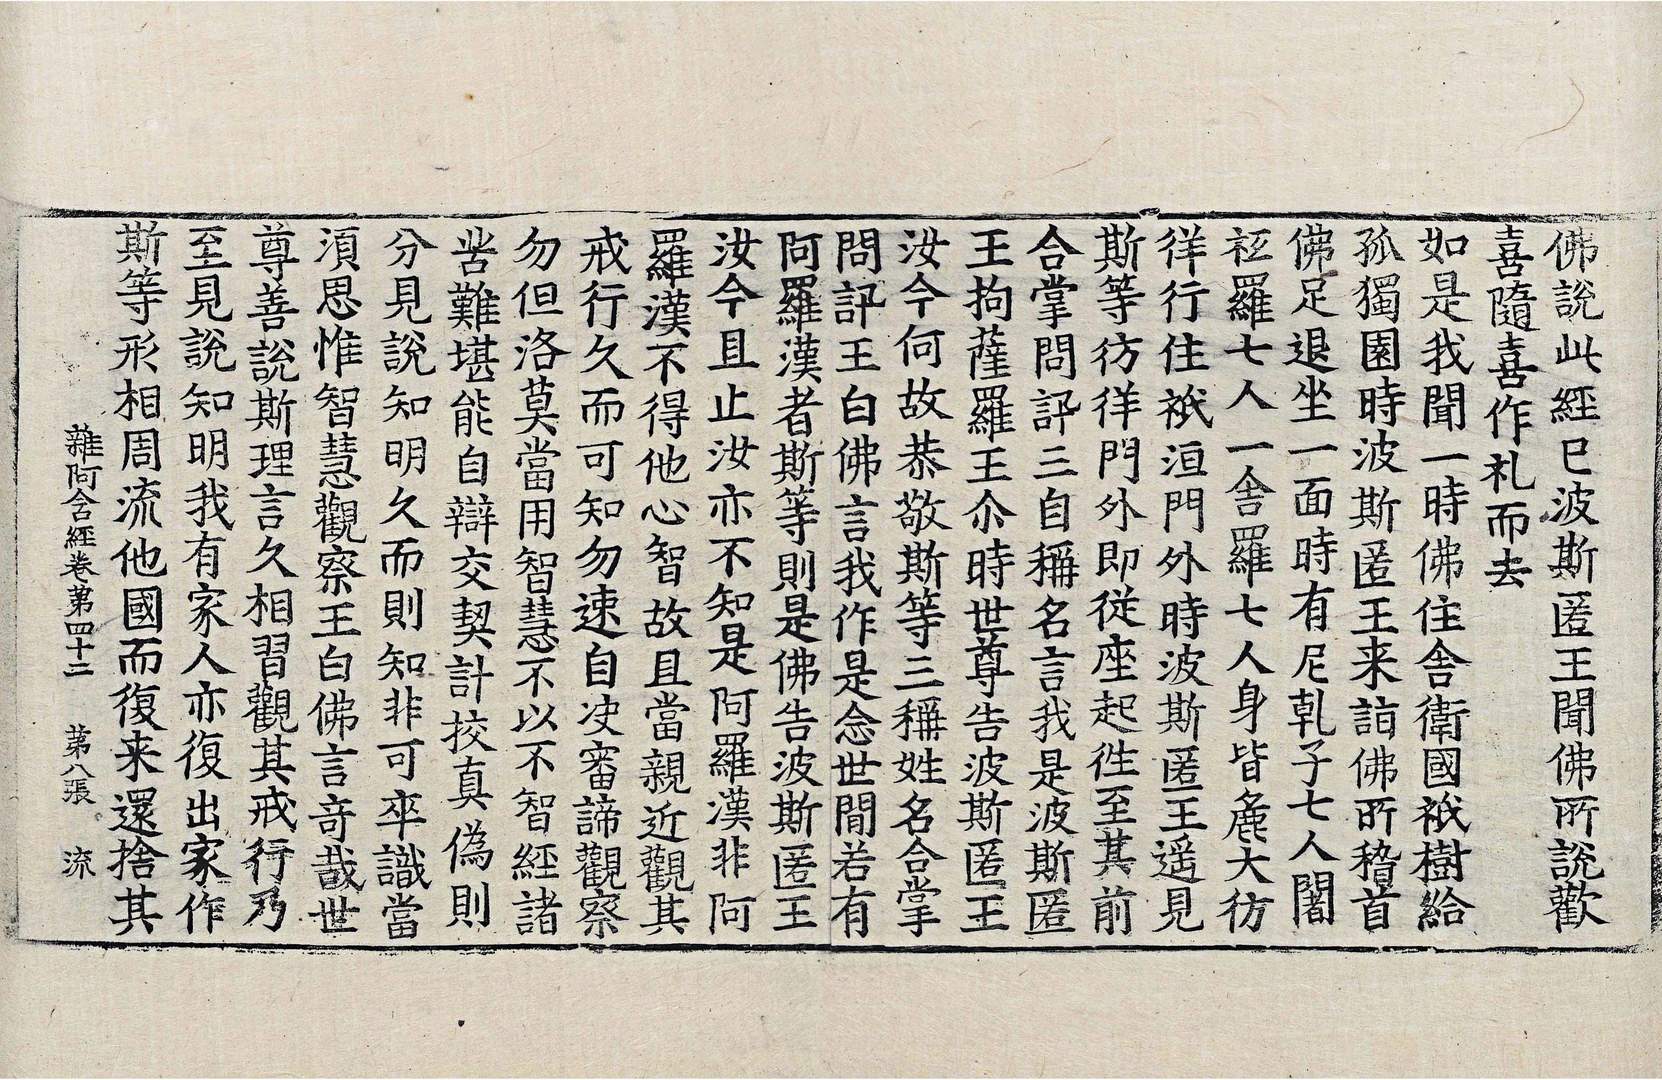 佛說此經已波斯匿王聞佛所說歡
喜隨喜作礼而去
如是我聞一時佛住舍衛國祇樹給
孤獨園時波斯匿王来詣佛所稽首
佛足退坐一面時有尼乹子七人闍
祇羅七人一舍羅七人身皆麁大彷
徉行住祇洹門外時波斯匿王遥見
斯等彷徉門外即從座起徃至其前
合掌問訊三自稱名言我是波斯匿
王拘薩羅王尒時世尊告波斯匿王
汝今何故恭敬斯等三稱姓名合掌
問訊王白佛言我作是念世間若有
阿羅漢者斯等則是佛告波斯匿王
汝今且止汝亦不知是阿羅漢非阿
羅漢不得他心智故且當親近觀其
戒行久而可知勿速自决審諦觀察
勿但洛莫當用智慧不以不智經諸
苦難堪能自辯交契計挍真偽則
分見說知明久而則知非可卒識當
湏思惟智慧觀察王白佛言竒哉世
尊善說斯理言久相習觀其戒行乃
至見說知明我有家人亦復出家作
斯等形相周流他國而復来還捨其
雜阿含經卷第四十二 第八張 流